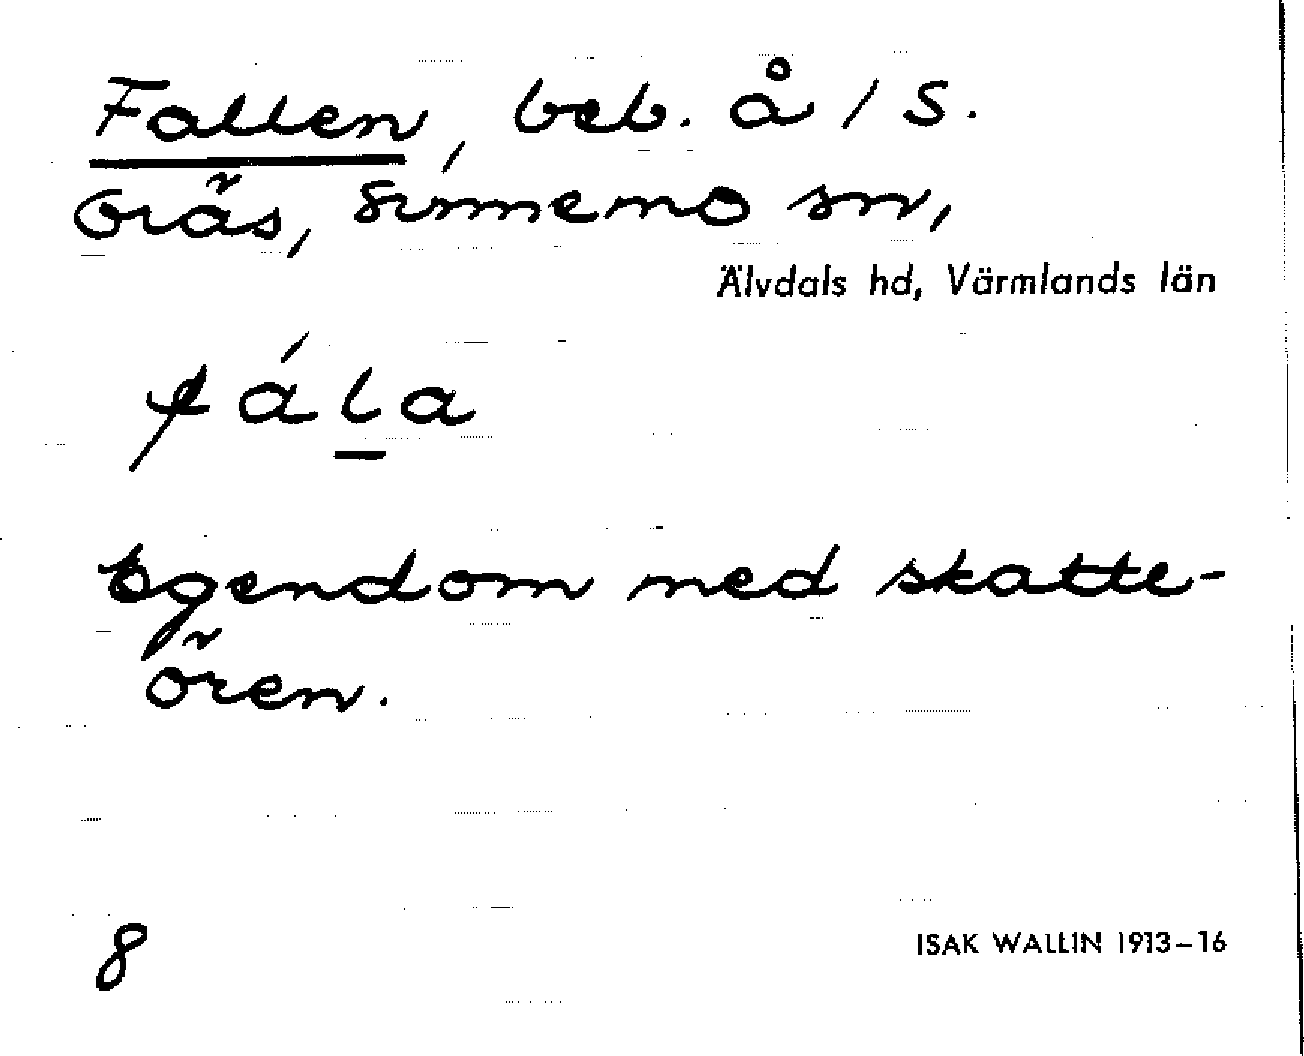 Fallen, beb. å 1 S.
Gräs, Sunnemo sn,
Älvdals hd, Värmlands län
fála
Egendom med skatte-
ören.
8
ISAK WALLIN 1913-16